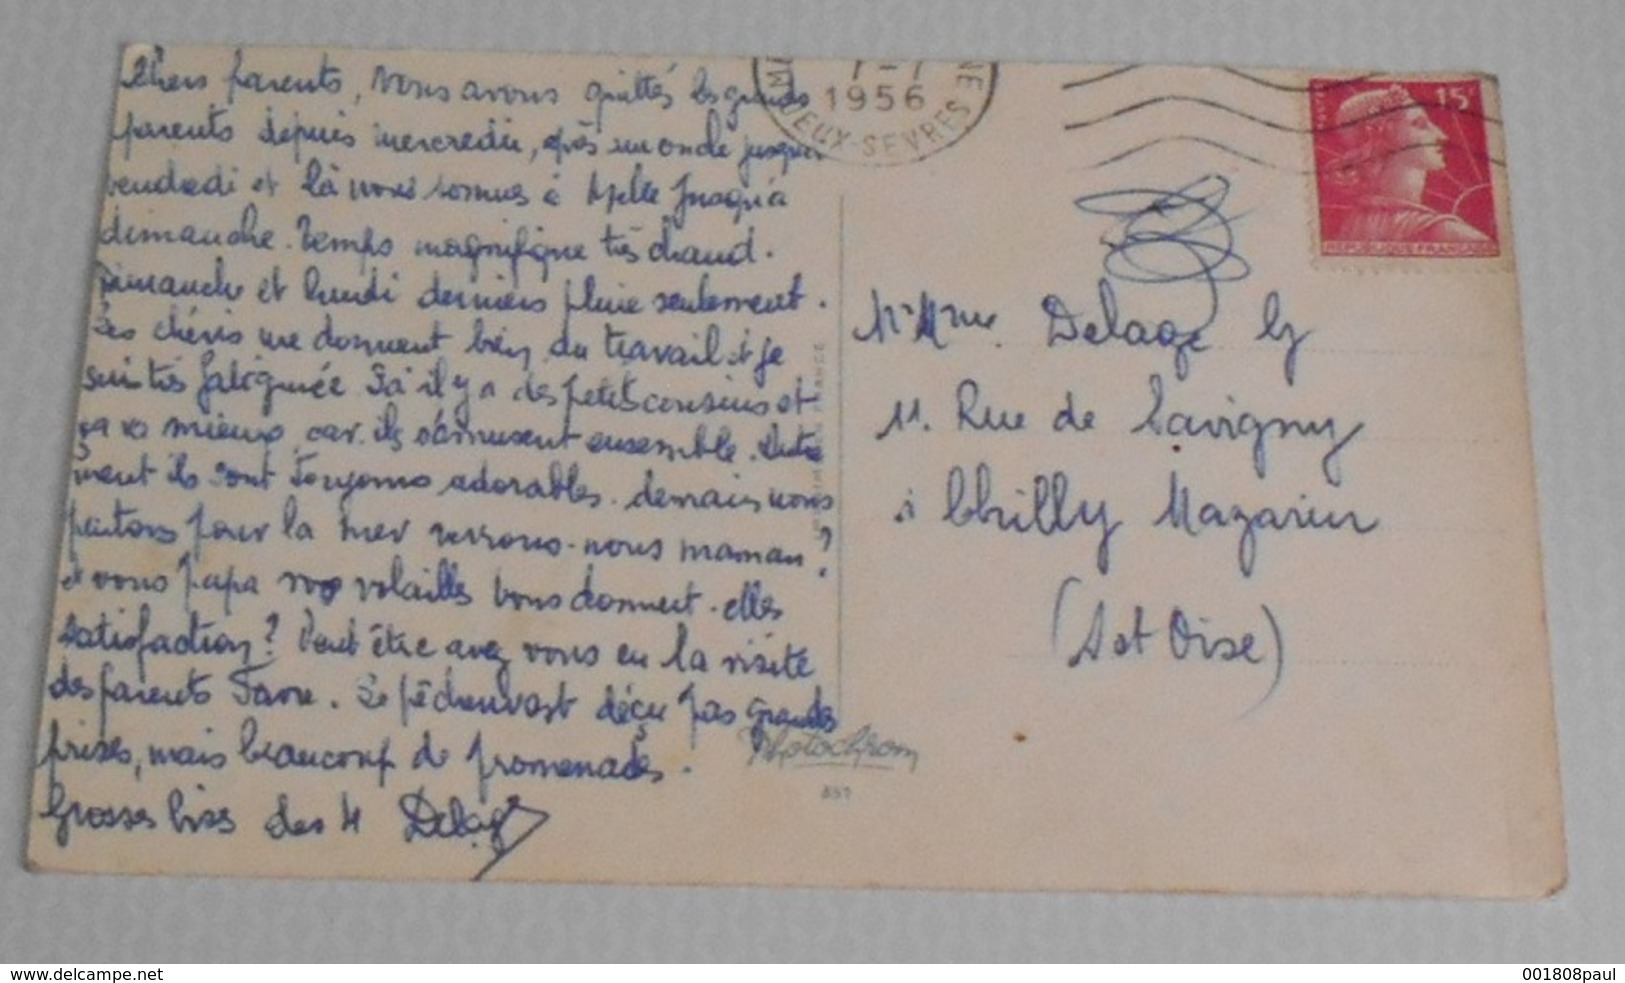 Chers parents, Nous avons quittés les grands
parents depuis mercredi, après un oncle jusqu'au
vendredi et là nous sommes à Melle jusqu'à
dimanche. Temps magnifique très chaud.
Dimanche et lundi derniers pluie seulement.
Les chéris me donnent bien du travail et je
suis très fatiguée. Ici il y a des petits cousins et
ça va mieux car ils s'amusent ensemble. Autre
ment ils sont toujours adorables. demain nous
partons pour la mer verrons-nous maman?
et vous Papa vos volailles vous donnent-elles
satisfaction? Peut être avez vous eu la visite
des parents Favre. Le pêcheur est déçu pas grandes
prises, mais beaucoup de promenades.
Grosses bises des 4 Delage
1956
DEUX-SEVRES
15F
POSTES
REPUBLIQUE FRANÇAISE
Mr Mme Delage G
11. Rue de Savigny
à Chilly Mazarin
(S et Oise)
Photochrom
www.delcampe.net
001808paul